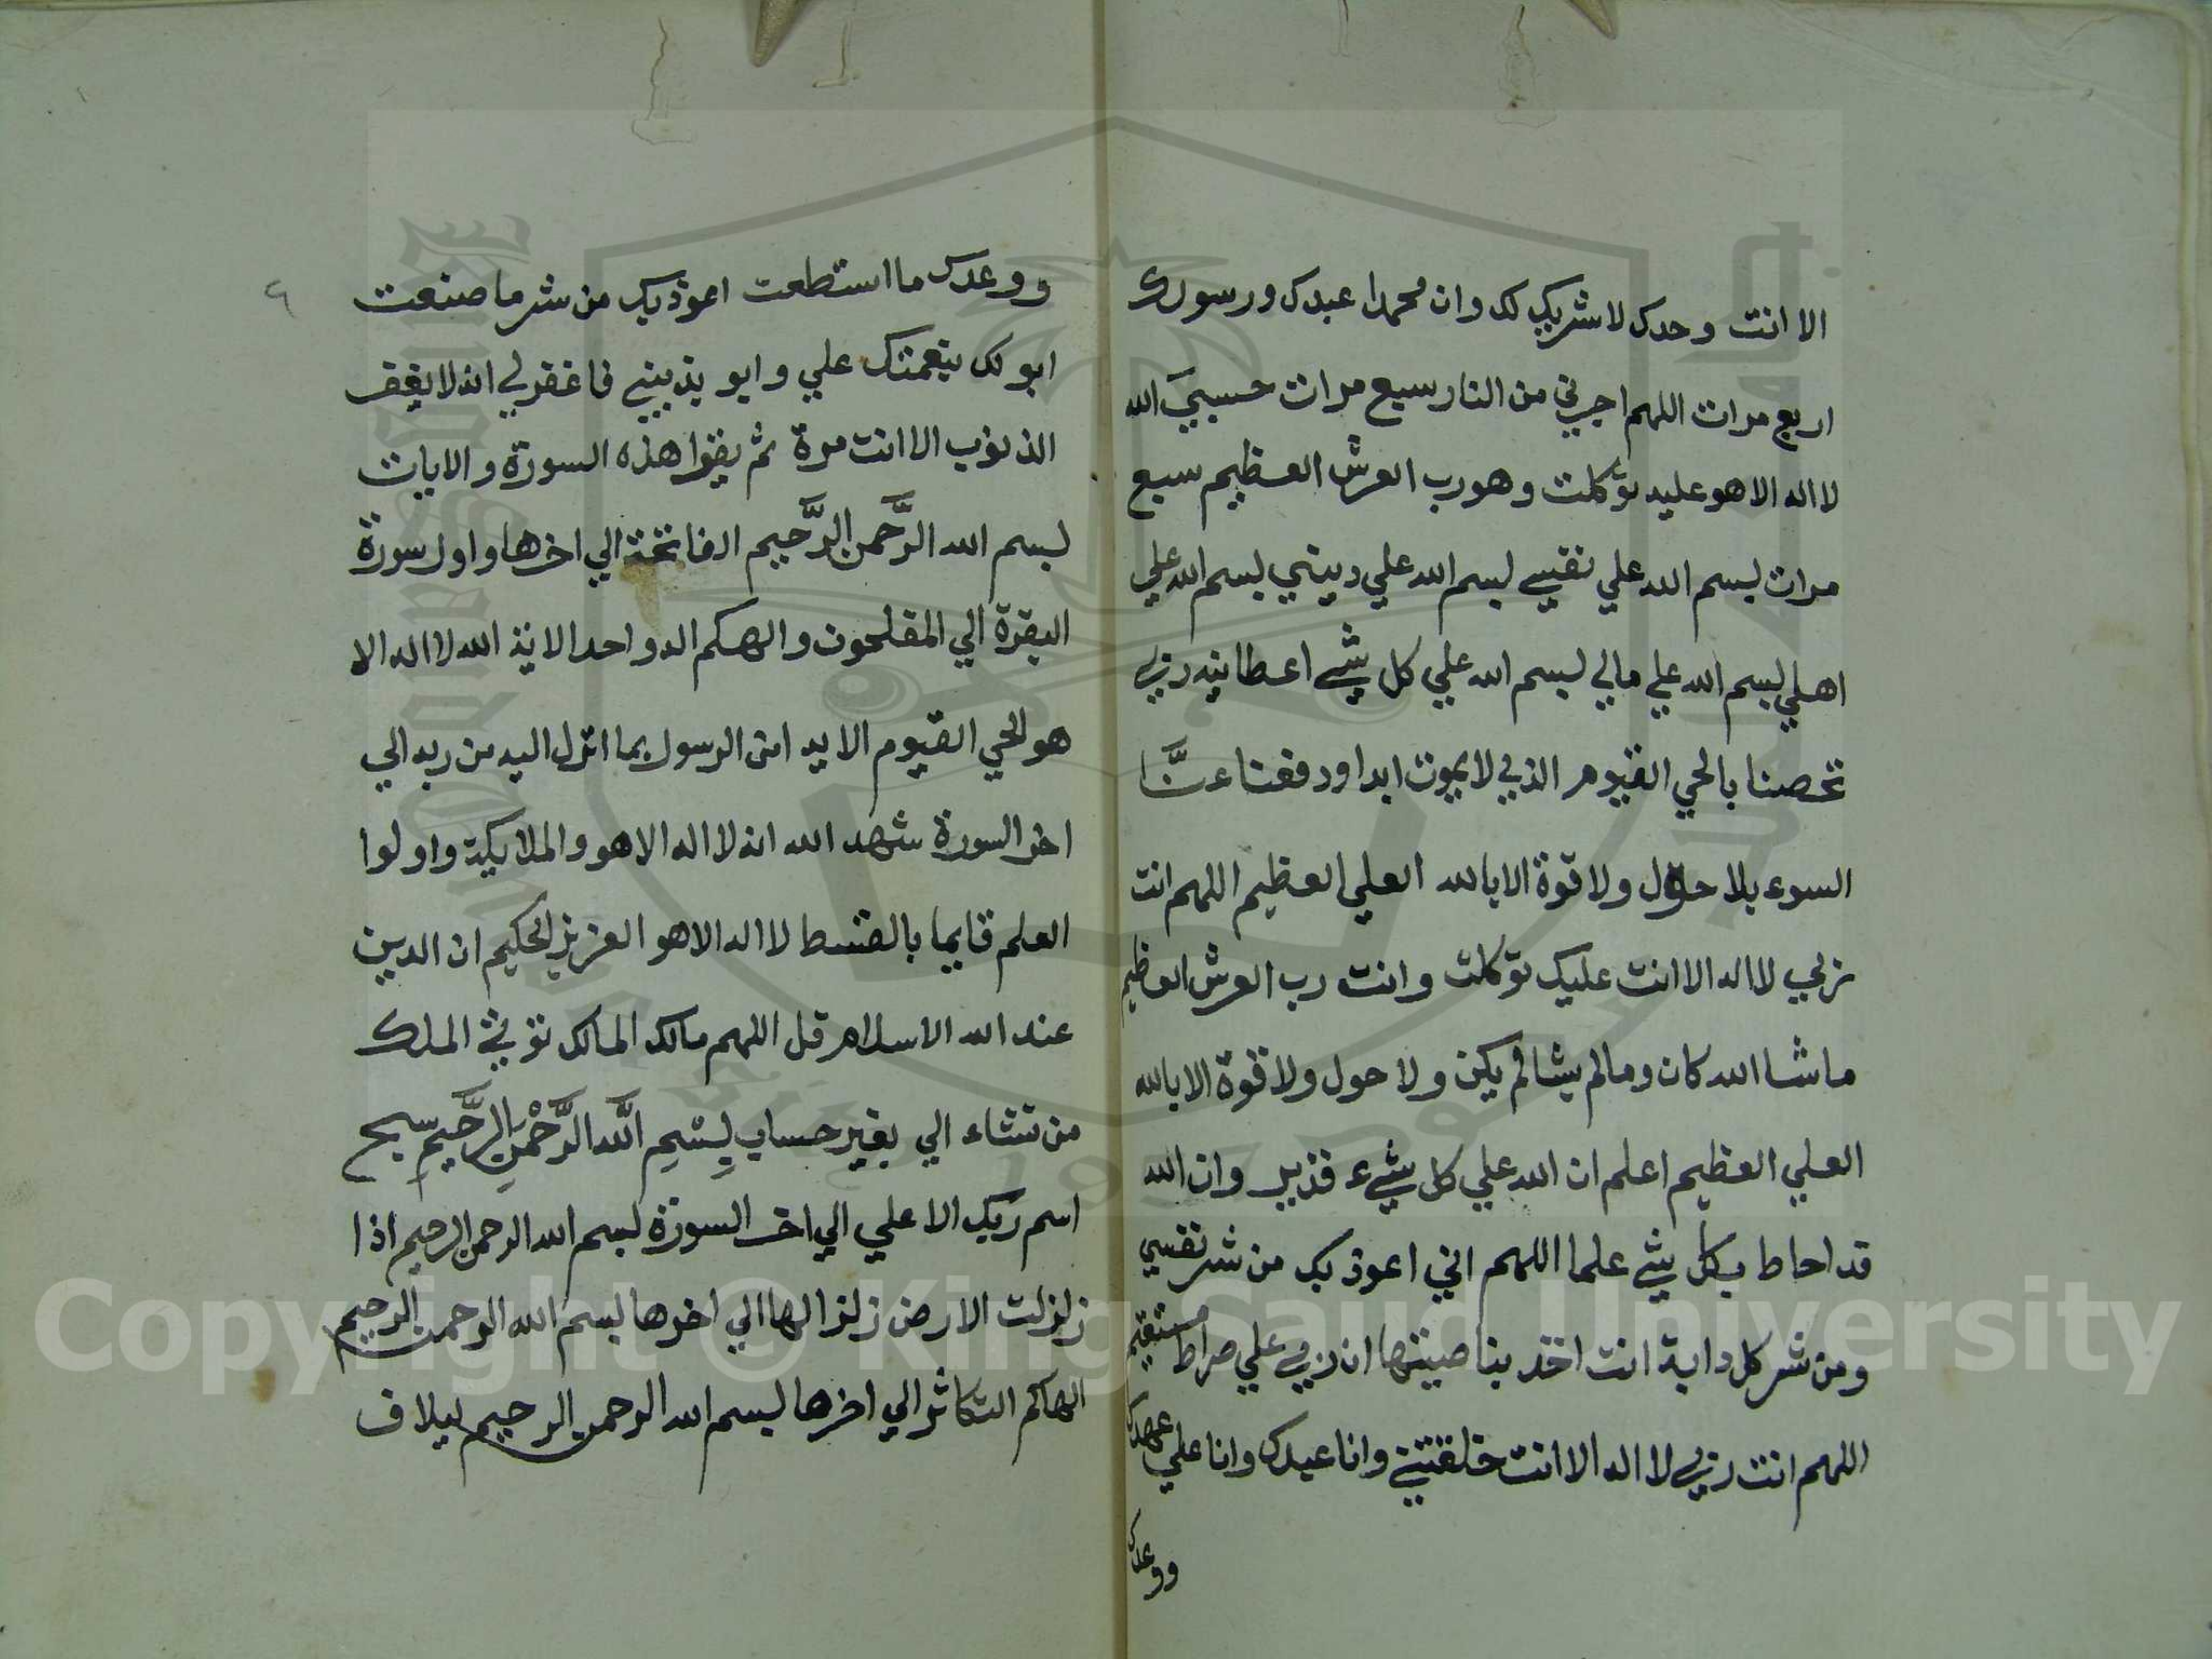 الا انت وحدك لا شريك لك وان محمدا عبدك ورسولك
اربع مرات اللهم اجرني من النار سبع مرات حسبيَ الله
لا اله الا هو عليه توكلت وهو رب العرش العظيم سبع
مرات بسم الله علي نفسي بسم الله علي ديني بسم الله علي
اهلي بسم الله علي مالي بسم الله علي كل شي اعطانيه ربي
تحصنا بالحي القيوم الذي لا يموت ابدا ودفعنا عنَّا
السوء بلا حول ولا قوة الا بالله العلي العظيم اللهم انت
ربي لا اله الا انت عليك توكلت وانت رب العرش العظيم
ما شا الله كان وما لم يشا لم يكن ولا حول ولا قوة الا بالله
العلي العظيم اعلم ان الله علي كل شيء قدير وان الله
قد احاط بكل شي علما اللهم اني اعوذ بك من شر نفسي
ومن شر كل دابة انت اخذ بناصيتها ان ربي علي صراط مستقيم
اللهم انت ربي لا اله الا انت خلقتني وانا عبدك وانا علي عهدك
ووعدك
٩
ووعدك ما استطعت اعوذ بك من شر ما صنعت
ابو لك بنعمتك علي وابو بذنبي فاغفر لي انه لا يغفر
الذنوب الا انت مرة ثم يقرا هذه السورة والايات
بسم الله الرَّحمن الرَّحيم الفاتحة الي اخرها واول سورة
البقرة الي المفلحون والهكم اله واحد الاية الله لا اله الا
هو الحي القيوم الاية امن الرسول بما انزل اليه من ربه الي
اخر السورة شهد الله انه لا اله الا هو والملايكة واولوا
العلم قايما بالقسط لا اله الا هو العزيز الحكيم ان الدين
عند الله الاسلام قل اللهم مالك المالك توتي الملك
من تشاء الي بغير حساب بِسْمِ اللَّه الرَّحْمنِ الرَّحيمِ سبح
اسم ربك الا علي الي اخر السورة بسم الله الرحمن الرحيم اذا
زلزلت الارض زلزالها الي اخرها بسم الله الرحمن الرحيم
الهاكم التكاثر الي اخرها بسم الله الرحمن الرحيم ليلاف
Copyright © King Saud University